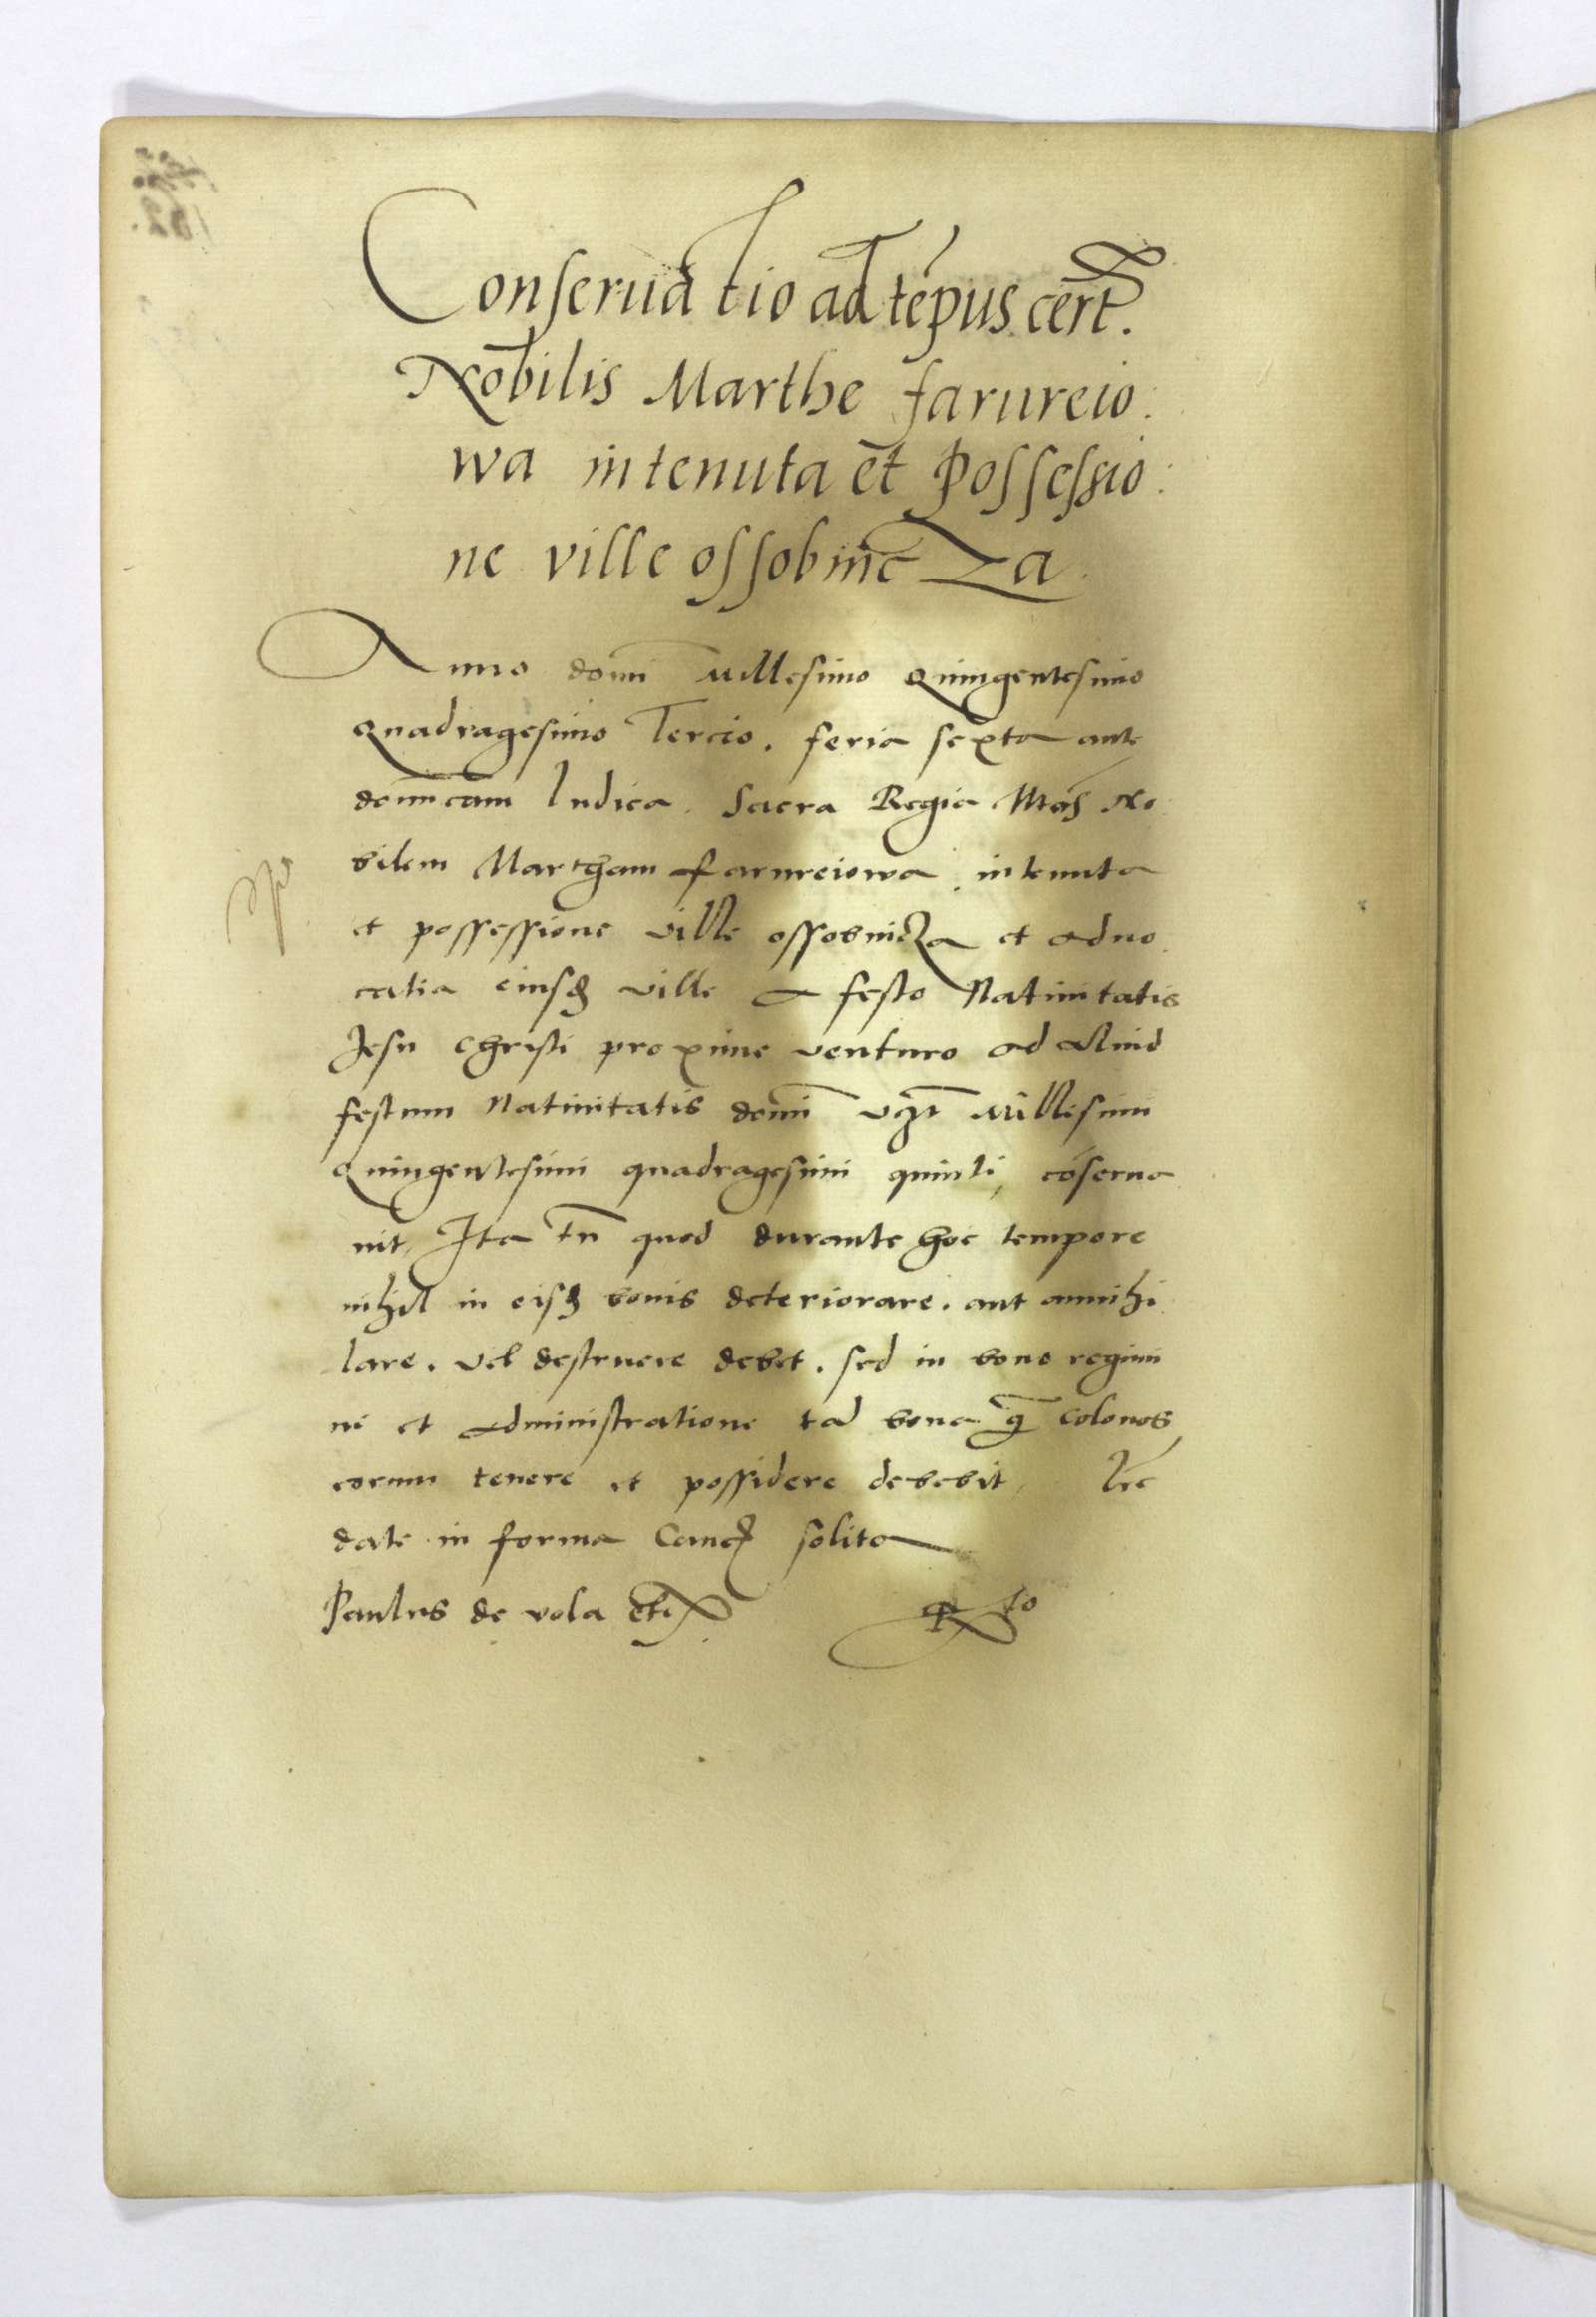 Conseruatio ad tēpus cert.
Nobilis Marthe farureio:
wa in tenuta et Possessio:
ne ville ossobnicza
Anno domī Millesimo Quingentesimo
Quadragesimo Tercio. feria sexta ante
domīcam Iudica. Sacra Regia Mtas No
bilem Martham farureiowa in tenuta
et possessione ville ossobnicza et aduo
catia eiusd ville a festo Natiuitatis
Jesu Christi proxime venturo ad aliud
festum Natiuitatis domī vzt Millesimi
Quingentesimi quadragesimi quinti, cōserua
uit, Ita tn̄ quod durante hoc tempore
nihil in eisd bonis deteriorare. aut annihi
lare. vel destruere debet. sed in bono regimi
ne et administratione tā bona q̄ colonos
eorum tenere et possidere debebit, Lr̄e
date in forma Canc solita
Paulus de vola etc
Rto